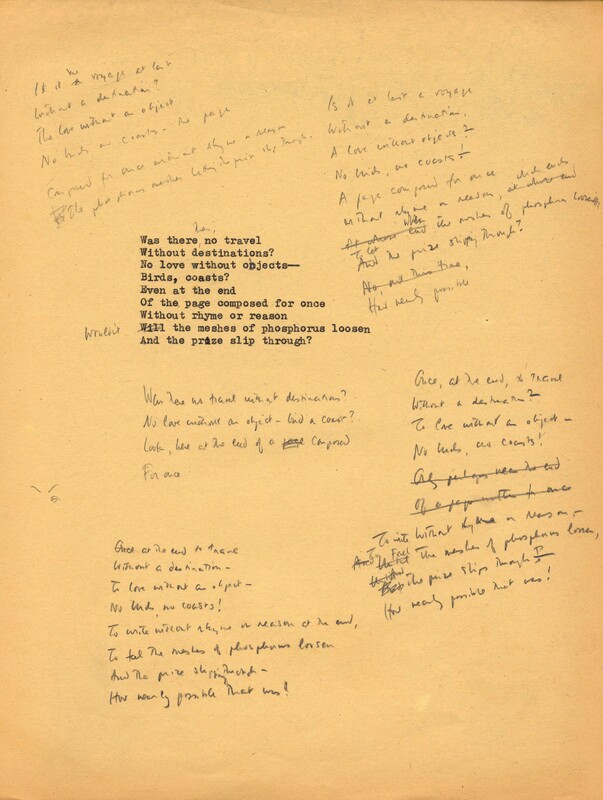 Is it the voyage at last
Without a destination?
The love without an object
No birds no coasts – the page
Composed for once without rhyme or reason
The phosphorus meshes letting the prize slip through.
Is it at last a voyage
Without a destination,
A love without objects?
No birds, no coasts!
A page composed for once
without rhyme or reason, which ends
at whose end
At whose end the meshes of phosphorus loosen
To let
And the prize slipping through?
No, not this time,
How nearly possible
Was there no travel
Without destinations?
No love without objects--
Birds, coasts?
Even at the end
Of the page composed for once
Without rhyme or reason
Wouldn't
Will the meshes of phosphorus loosen
And the prize slip through?
Was there no travel without destinations?
No love without an object – bird or coast?
Look, here at the end of a page composed
For once
Once, at the end, to travel
Without a destination –
To love without an object –
No birds, no coasts!
Only perhaps near the end
Of a page written for once
To write without rhyme or reason –
To feel the meshes of phosphorus loosen,
the prize slips through –
How nearly possible that was!
Once at the end to travel
Without a destination –
To love without an object –
No birds, no coasts!
To write without rhyme or reason at the end,
To feel the meshes of phosphorus loosen
And the prize slipping through –
How nearly possible that was!